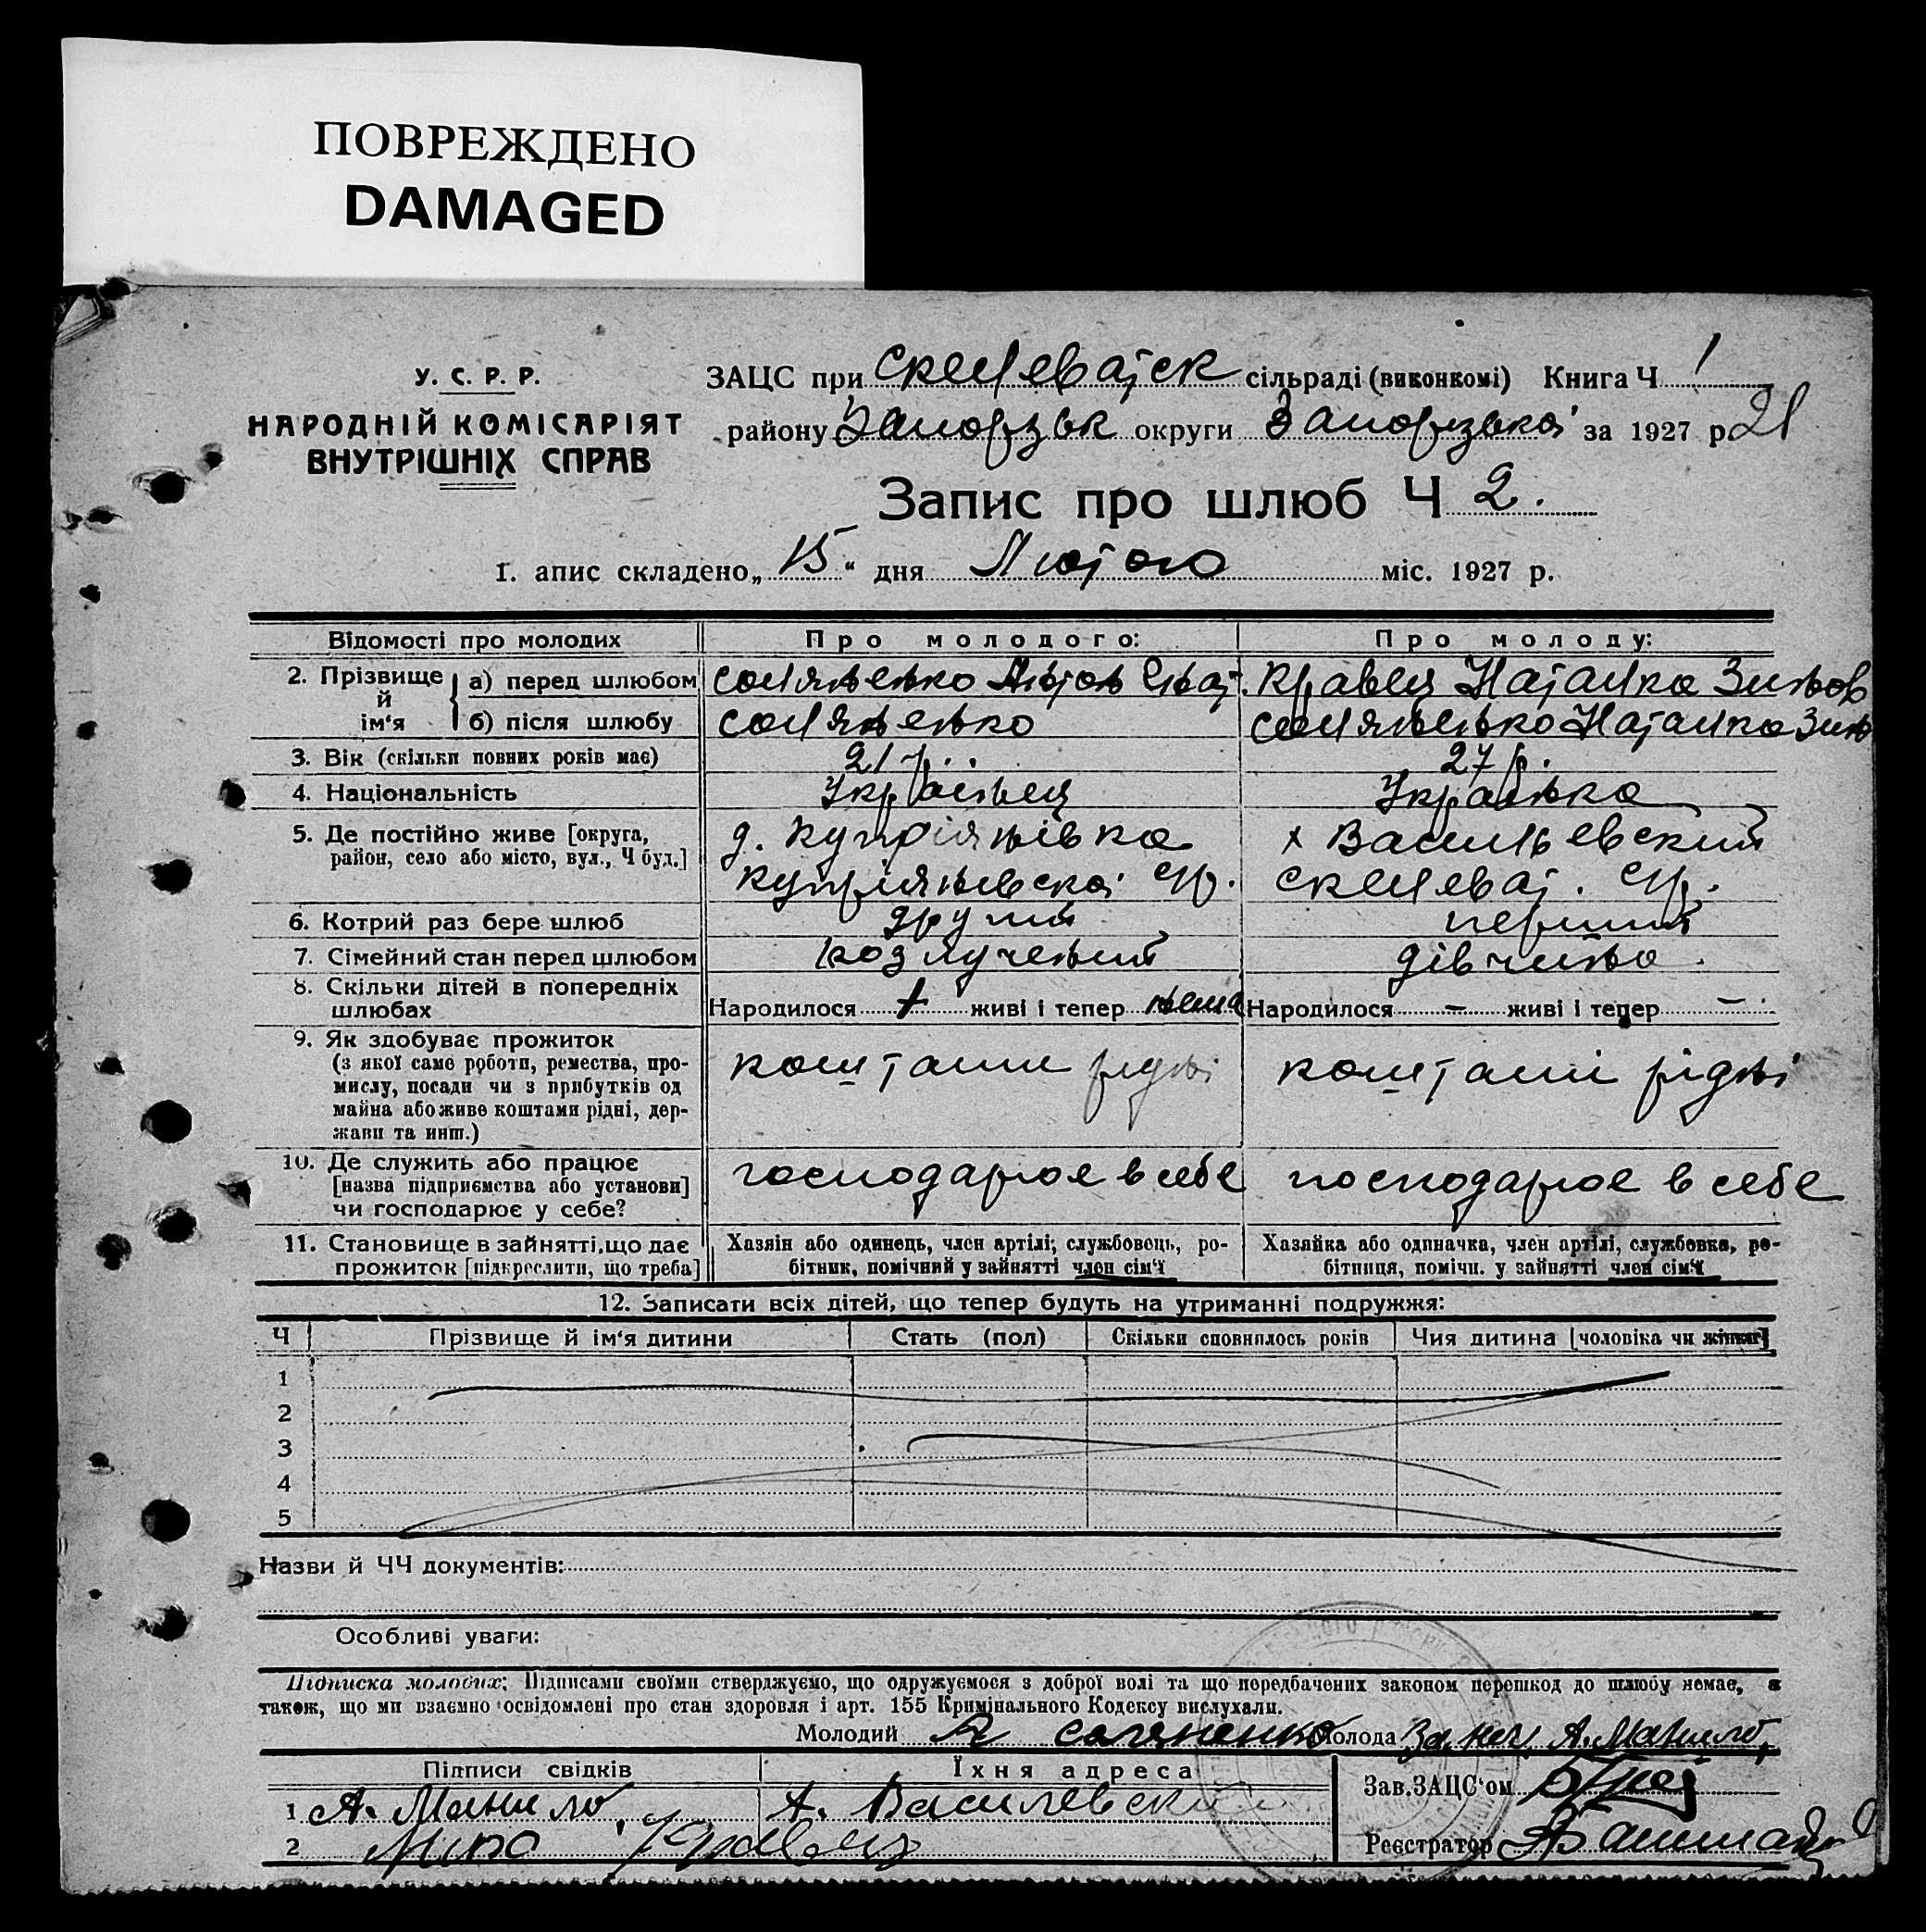 ПОВРЕЖДЕНО
DAMAGED
У. С. Р. Р.
НАРОДНІЙ КОМІСАРІЯТ
ВНУТРІШНІХ СПРАВ
ЗАЦС при Скелеватск сільраді (виконкомі) Книга Ч 1
району Запорізьк округи Запорізької за 1927 р. 21
Запис про шлюб Ч 2.
1. апис складено „ 15 “ дня Лютого міс. 1927 р.
Відомості про молодих Про молодого: Про молоду:
2. Прізвище й ім'я а) перед шлюбом Соляненко Антон Кравец Наталка Зиньов
б) після шлюбу Соляненко Соляненько Наталка Зин
3. Вік (скільки повних років має) 21 р. 27 р.
4. Національність Українец Українка
5. Де постійно живе [округа, район, село або місто, вул., Ч буд.] д. Купріянівка х Васильевский
Купріяневскоі Ср. Скелеват. Ср.
6. Котрий раз бере шлюб другий перший
7. Сімейний стан перед шлюбом Розлучений дівчина.
8. Скільки дітей в попередніх шлюбах Народилося 1 живі і тепер нема Народилося — живі і тепер —
9. Як здобуває прожиток
(з якої саме роботи, ремества, про-
мислу, посади чи з прибутків од
майна або живе коштами рідні, дер-
жави та инш.)
коштами рідні коштами рідні
10. Де служить або працює
[назва підприємства або установи]
чи господарює у себе?
господарюе в себе господарюе в себе
11. Становище в зайнятті, що дає
прожиток [підкреслити, що треба]
Хазяін або одинець, член артілі, службовець, ро-
бітник, помічний у зайнятті член сім'ї
Хазяйка або одиначка, член артілі, службовка, ро-
бітниця, помічн. у зайнятті член сім'ї
12. Записати всіх дітей, що тепер будуть на утриманні подружжя:
Ч Прізвище й ім'я дитини Стать (пол) Скільки сповнилось років Чия дитина [чоловіка чи жінки]
1
2
3
4
5
Назви й ЧЧ документів:
Особливі уваги:
Підписка молодих: Підписами своїми стверджуємо, що одружуємося з доброї волі та що передбачених законом перешкод до шлюбу немає, а
також, що ми взаємно освідомлені про стан здоровля і арт. 155 Кримінального Кодексу вислухали.
Молодий А Соляненко Молода За неи А. Манило
Підписи свідків Їхня адреса Зав. ЗАЦС'ом
1 А. Манило х. Василевский
2 Кравец Реєстратор